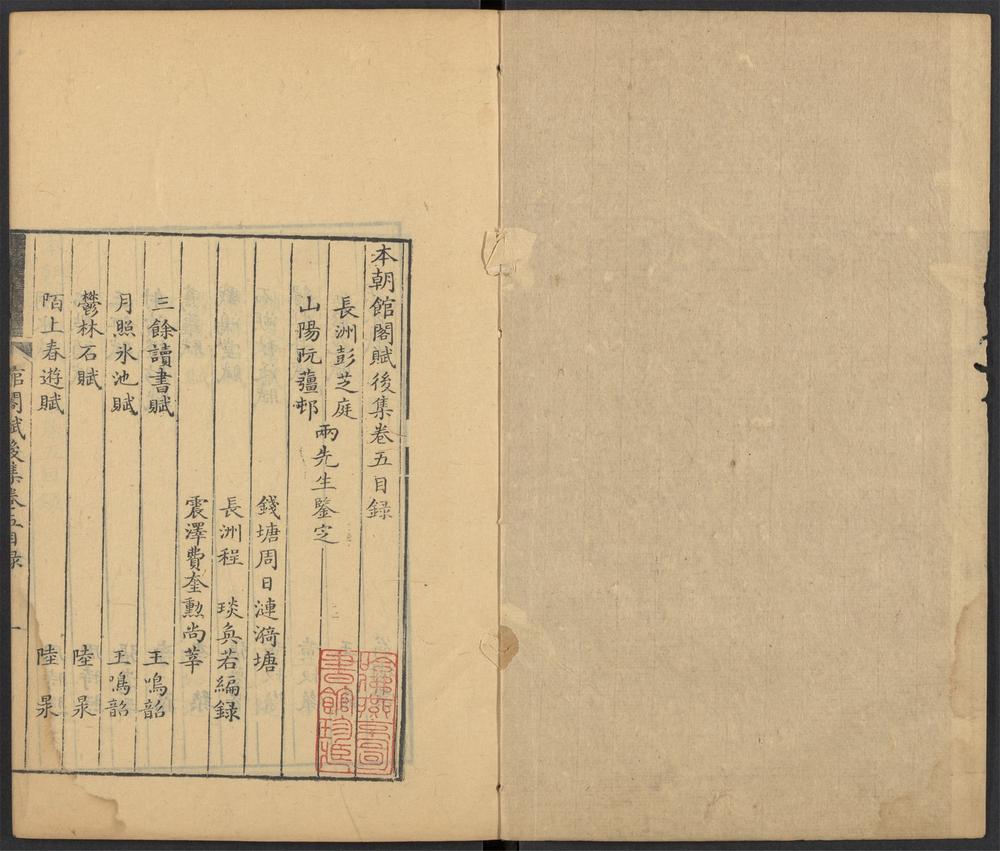 本朝館閣賦後集卷五目録
長洲彭芝庭
山陽阮𧄍邨
兩先生鑒定
錢塘周日漣漪塘
長洲程　琰奐若編録
震澤費奎勲尚莘
三餘讀書賦　王鳴韶
月照氷池賦　王鳴韶
鬱林石賦　陸泉
陌上春遊賦　陸泉
館閣賦後集卷五目録　一
哈佛燕京圖書館珍藏